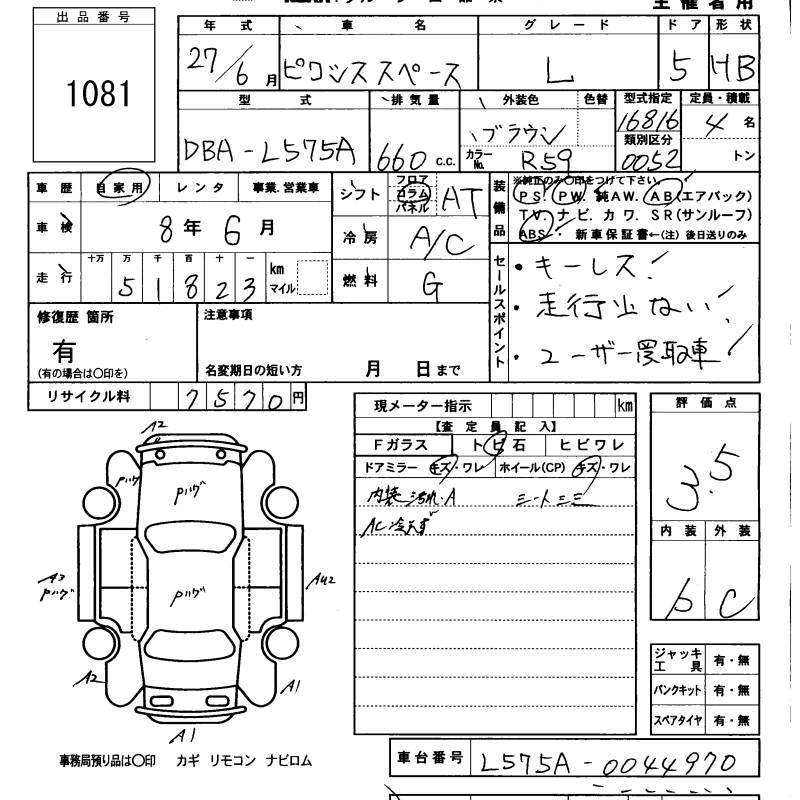 主催者用
出品番号
1081
年式 車名 グレード ドア 形状
27/6月 ピクシススペース L 5 HB
型式 排気量 外装色 色替 型式指定 定員・積載
DBA-L575A 660 c.c. ブラウン 16816 4名
類別区分
カラーNo. R59 0052 トン
車歴 自家用 レンタ 事業.営業車
シフト フロア コラム パネル AT
装備品 ※純正のみ〇印をつけて下さい。
PS. PW. 純AW. AB(エアバッグ)
TV. ナビ. カワ. SR(サンルーフ)
ABS. 新車保証書←(注)後日送りのみ
車検 8年6月
冷房 A/C
走行 十万 万 千 百 十 一
51823 km マイル
燃料 G
セールスポイント
・キーレス!
・走行少ない!
・ユーザー買取車!
修復歴 箇所
有
(有の場合は〇印を)
注意事項
名変期日の短い方 月 日まで
リサイクル料 7570円
現メーター指示 km
【査定員記入】
Fガラス トビ石 ヒビワレ
ドアミラー キズ・ワレ ホイール(CP) キズ・ワレ
内装 汚れ・A
評価点
3.5
内装 外装
b C
A2
A3
A2
A1
A1
ジャッキ工具 有・無
パンクキット 有・無
スペアタイヤ 有・無
事務局預り品は〇印 カギ リモコン ナビロム
車台番号 L575A-0044970